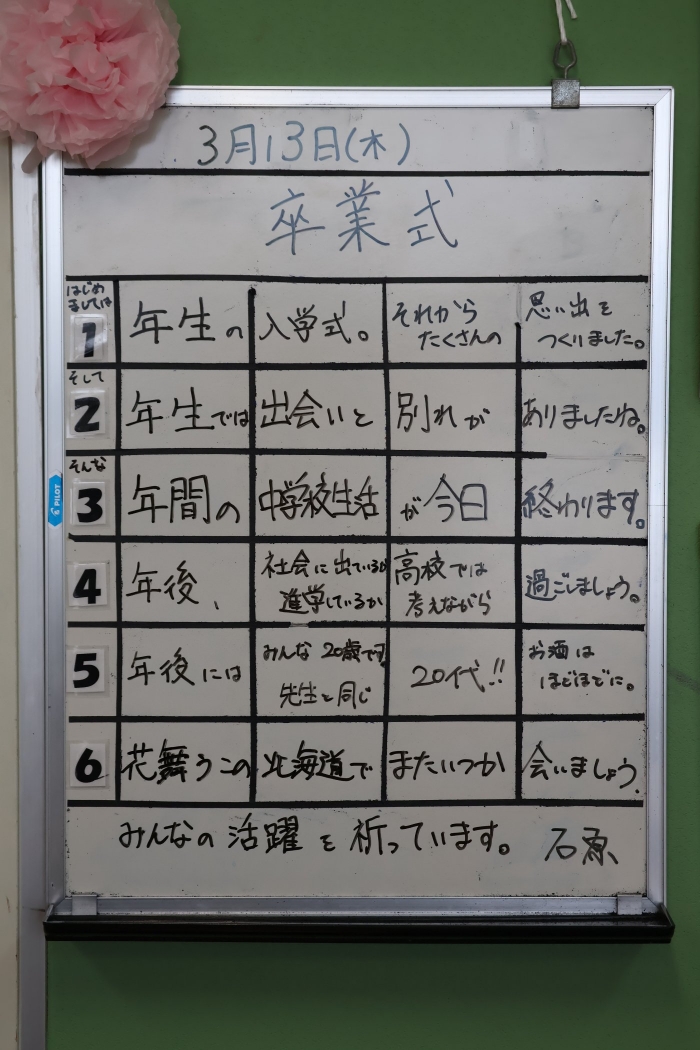 3月13日(木)
卒業式
はじめ
ましては
1 年生の 入学式。 それから
たくさんの 思い出を
つくりました。
そして
2 年生では 出会いと 別れが ありましたね。
そんな
3 年間の 中学校生活 が今日 終わります。
4 年後、 社会に出ているか
進学しているか 高校では
考えながら 過ごしましょう。
5 年後には みんな20歳です
先生と同じ 20代!! お酒は
ほどほどに。
6 花舞うこの 北海道で またいつか 会いましょう。
みんなの活躍を祈っています。 石原
PILOT